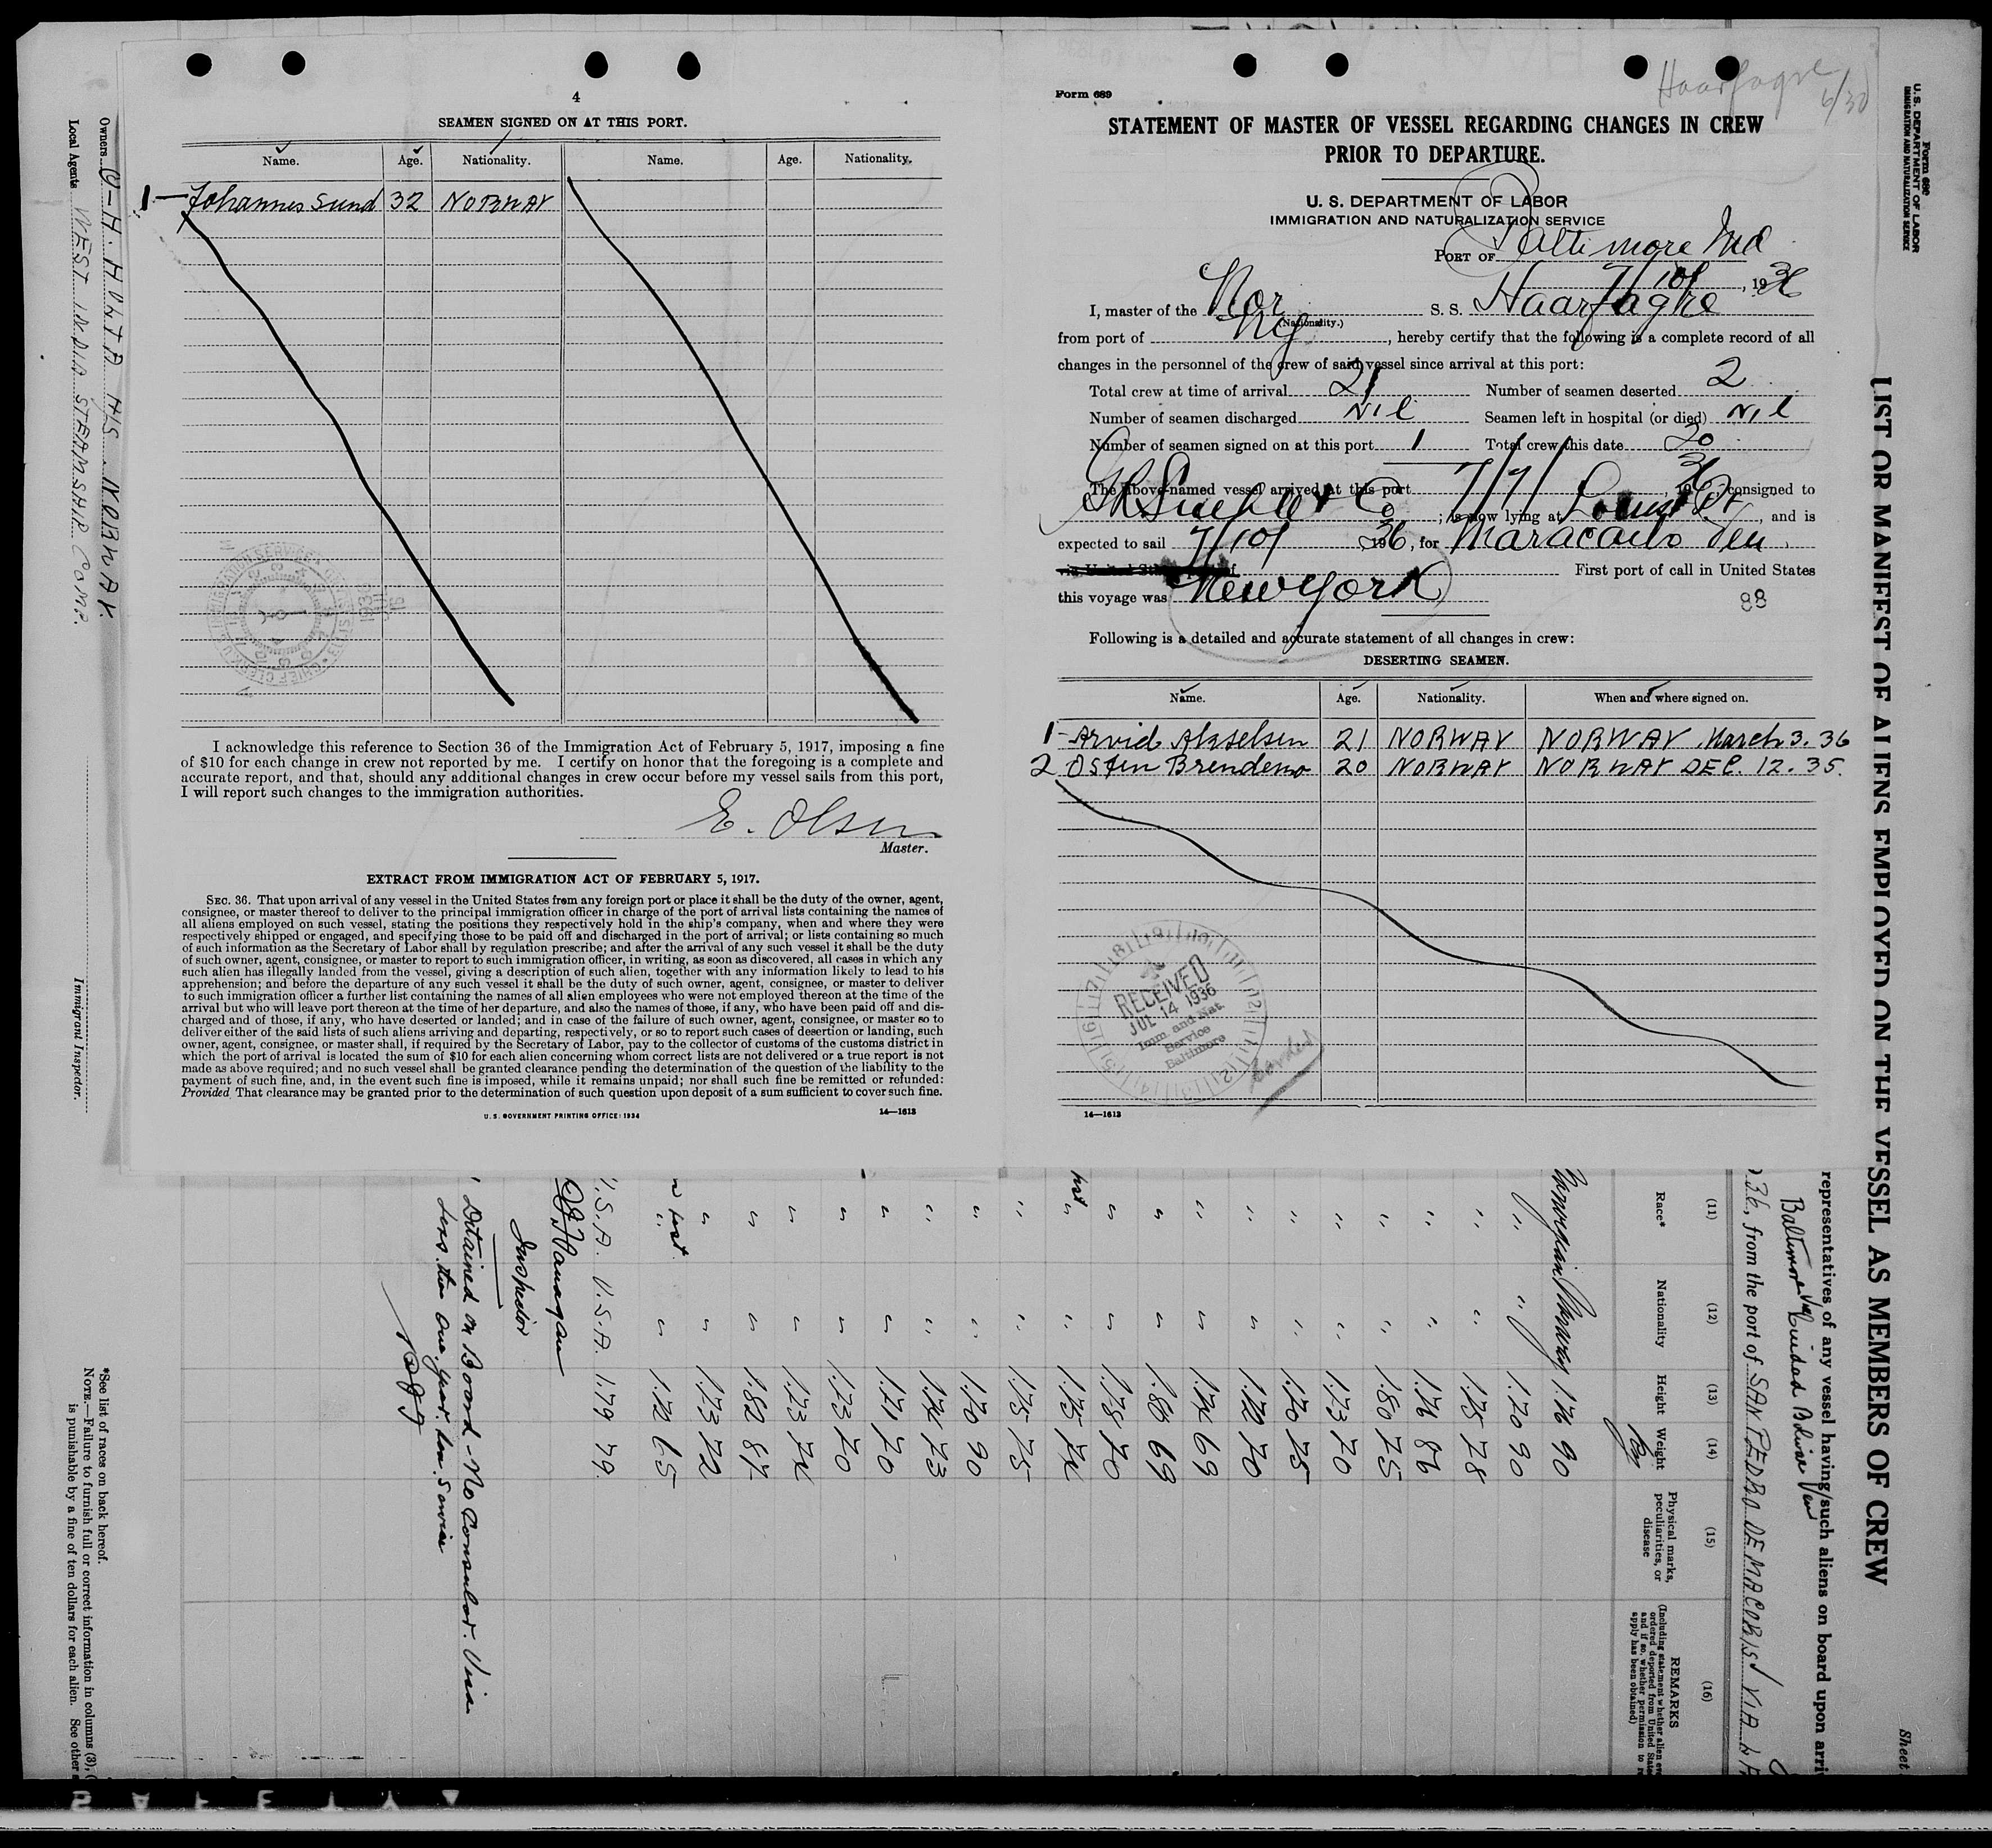 4
SEAMEN SIGNED ON AT THIS PORT.
Name. Age. Nationality. Name. Age. Nationality.
1 — Johannes Sund 32 NORWAY
I acknowledge this reference to Section 36 of the Immigration Act of February 5, 1917, imposing a fine
of $10 for each change in crew not reported by me. I certify on honor that the foregoing is a complete and
accurate report, and that, should any additional changes in crew occur before my vessel sails from this port,
I will report such changes to the immigration authorities.
E. Olsen
Master.
EXTRACT FROM IMMIGRATION ACT OF FEBRUARY 5, 1917.
SEC. 36. That upon arrival of any vessel in the United States from any foreign port or place it shall be the duty of the owner, agent,
consignee, or master thereof to deliver to the principal immigration officer in charge of the port of arrival lists containing the names of
all aliens employed on such vessel, stating the positions they respectively hold in the ship's company, when and where they were
respectively shipped or engaged, and specifying those to be paid off and discharged in the port of arrival; or lists containing so much
of such information as the Secretary of Labor shall by regulation prescribe; and after the arrival of any such vessel it shall be the duty
of such owner, agent, consignee, or master to report to such immigration officer, in writing, as soon as discovered, all cases in which any
such alien has illegally landed from the vessel, giving a description of such alien, together with any information likely to lead to his
apprehension; and before the departure of any such vessel it shall be the duty of such owner, agent, consignee, or master to deliver
to such immigration officer a further list containing the names of all alien employees who were not employed thereon at the time of the
arrival but who will leave port thereon at the time of her departure, and also the names of those, if any, who have been paid off and dis-
charged and of those, if any, who have deserted or landed; and in case of the failure of such owner, agent, consignee, or master so to
deliver either of the said lists of such aliens arriving and departing, respectively, or so to report such cases of desertion or landing, such
owner, agent, consignee, or master shall, if required by the Secretary of Labor, pay to the collector of customs of the customs district in
which the port of arrival is located the sum of $10 for each alien concerning whom correct lists are not delivered or a true report is not
made as above required; and no such vessel shall be granted clearance pending the determination of the question of the liability to the
payment of such fine, and, in the event such fine is imposed, while it remains unpaid; nor shall such fine be remitted or refunded:
Provided, That clearance may be granted prior to the determination of such question upon deposit of a sum sufficient to cover such fine.
U. S. GOVERNMENT PRINTING OFFICE: 1934 14—1613
Form 689
Haarfagre
6/30
STATEMENT OF MASTER OF VESSEL REGARDING CHANGES IN CREW
PRIOR TO DEPARTURE.
U. S. DEPARTMENT OF LABOR
IMMIGRATION AND NATURALIZATION SERVICE
PORT OF Baltimore Md
7/10/, 1936
I, master of the Nor S. S. Haarfagre
(Nationality.)
from port of NY, hereby certify that the following is a complete record of all
changes in the personnel of the crew of said vessel since arrival at this port:
Total crew at time of arrival 21 Number of seamen deserted 2
Number of seamen discharged Nil Seamen left in hospital (or died) Nil
Number of seamen signed on at this port 1 Total crew this date 20
The above-named vessel arrived at this port 7/7/, 1936, consigned to
& Co; is now lying at Locust Pt, and is
expected to sail 7/10/ 1936, for Maracaibo Ven
First port of call in United States
this voyage was New York
88
Following is a detailed and accurate statement of all changes in crew:
DESERTING SEAMEN.
Name. Age. Nationality. When and where signed on.
1 - Arvid Akselsen 21 NORWAY NORWAY March 3. 36
2 Osten Brendemo 20 NORWAY NORWAY DEC. 12. 35.
RECEIVED
JUL 14 1936
Imm. and Nat.
Service
Baltimore
14—1613
Form 680
U. S. DEPARTMENT OF LABOR
IMMIGRATION AND NATURALIZATION SERVICE
LIST OR MANIFEST OF ALIENS EMPLOYED ON THE VESSEL AS MEMBERS OF CREW
Sheet
representatives of any vessel having such aliens on board upon arri
Baltimore via Ciudad Bolivar Ven
36, from the port of SAN PEDRO DE MACORIS VIA
(11) (12) (13) (14) (15) (16)
Race* Nationality Height Weight Physical marks, peculiarities, or disease REMARKS
(Including statement whether alien ever
ordered deported from United States
and if so, whether permission to re
apply has been obtained)
Norwegian Norway 1.76 90
" " 1.70 90
" " 1.75 78
" " 1.76 86
" " 1.80 75
" " 1.73 70
" " 1.70 75
" " 1.72 70
" " 1.74 69
" " 1.86 69
" " 1.78 70
" " 1.75 74
" " 1.75 75
" " 1.70 90
" " 1.74 73
" " 1.71 70
" " 1.73 70
" " 1.73 74
" " 1.82 84
" " 1.73 72
" " 1.72 65
U.S.A. U.S.A. 1.79 79.
Inspector
Detained on Board - No Consular Visa
less than one year Am. Service
Owners O-H. HOLTA H/S. NORWAY
Local Agents WEST INDIA STEAMSHIP COMP.
Immigrant Inspector.
*See list of races on back hereof.
NOTE.—Failure to furnish full or correct information in columns (3),
is punishable by a fine of ten dollars for each alien. See other
SAFETY